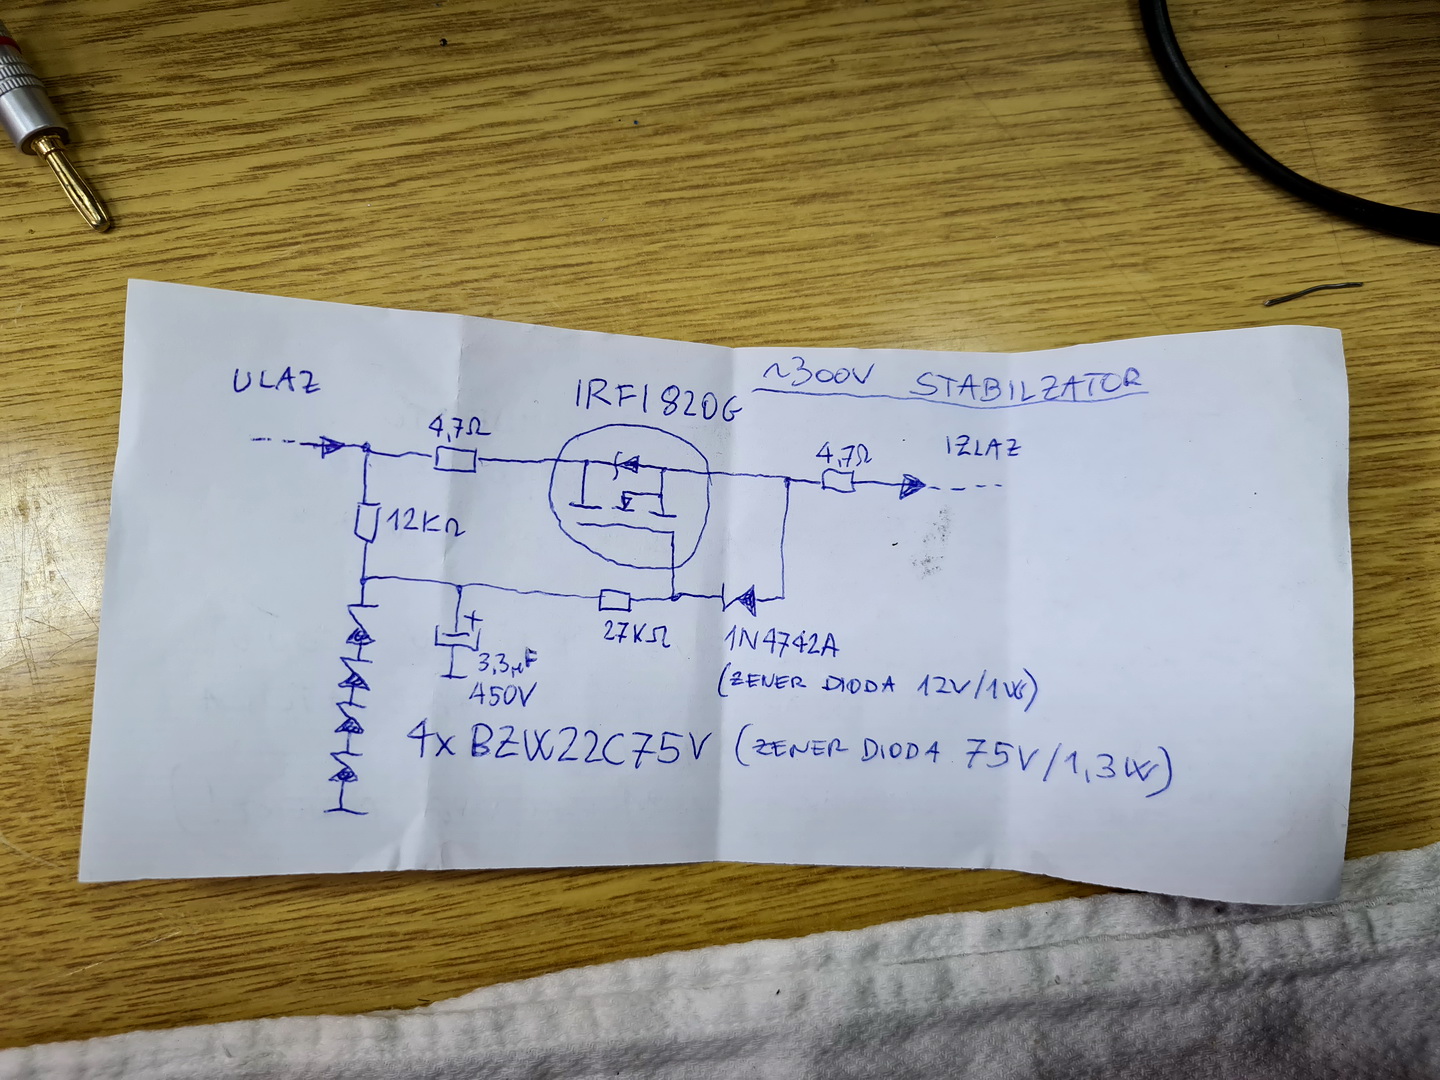 ~300V STABILZATOR
ULAZ
IRFI820G
4,7Ω
4,7Ω
IZLAZ
12KΩ
+
27KΩ
1N4742A
3,3µF
450V
(ZENER DIODA 12V/1W)
4x BZW22C75V (ZENER DIODA 75V/1,3W)